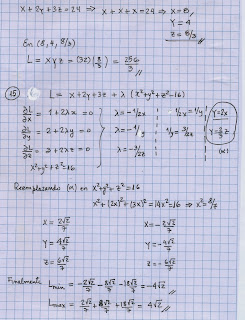 x + 2y + 3z = 24 ⟹ x + x + x = 24 ⟹ x = 8,
y = 4
z = 8/3
En (8, 4, 8/3)
L = xyz = (32)(8/3) = 256/3 //
(15) L = x + 2y + 3z + λ (x² + y² + z² - 16)
∂L/∂x = 1 + 2λx = 0 λ = -1/2x -1/2x = -1/y y = 2x
∂L/∂y = 2 + 2λy = 0 λ = -1/y
∂L/∂z = 3 + 2λz = 0 λ = -3/2z (α)
x² + y² + z² = 16
Reemplazando (α) en x² + y² + z² = 16
x² + (2x)² + (3x)² = 14x² = 16 ⟹ x² = 8/7
x = 2√2/7 x = -2√2/7
y = 4√2/7 y = -4√2/7
z = 6√2/7 z = -6√2/7
Finalmente Lmin = -2√2/7 - 8√2/7 - 18√2/7 = -4√2 //
Lmax = 2√2/7 + 8√2/7 + 18√2/7 = 4√2 //